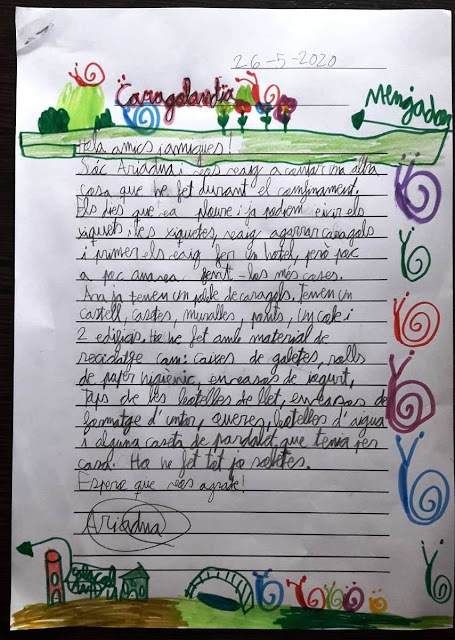 26-5-2020
Caragolandia
Menjador
Hola amics i amigues!
Sóc Ariadna i vos vaig a contar una altra
cosa que he fet durant el confinament.
Els dies que va ploure i ja podiem eixir els
xiquets i les xiquetes, vaig agarrar caragols
i primer els vaig fer un hotel, però poc
a poc anava fent-los més coses.
Ara ja tenen un poble de caragols. Tenen un
castell, casetes, muralles, ponts, un cole i
2 edificis. Ho he fet amb material de
reciclatge com: caixes de galetes, rolls
de paper higiènic, envasos de iogurt,
taps de les botelles de llet, envasos de
formatge d'untar, oueres, botelles d'aigua
i alguna caseta de pardalet que tenia per
casa. Ho he fet tot jo soletes.
Espere que vos agrade!
Ariadna